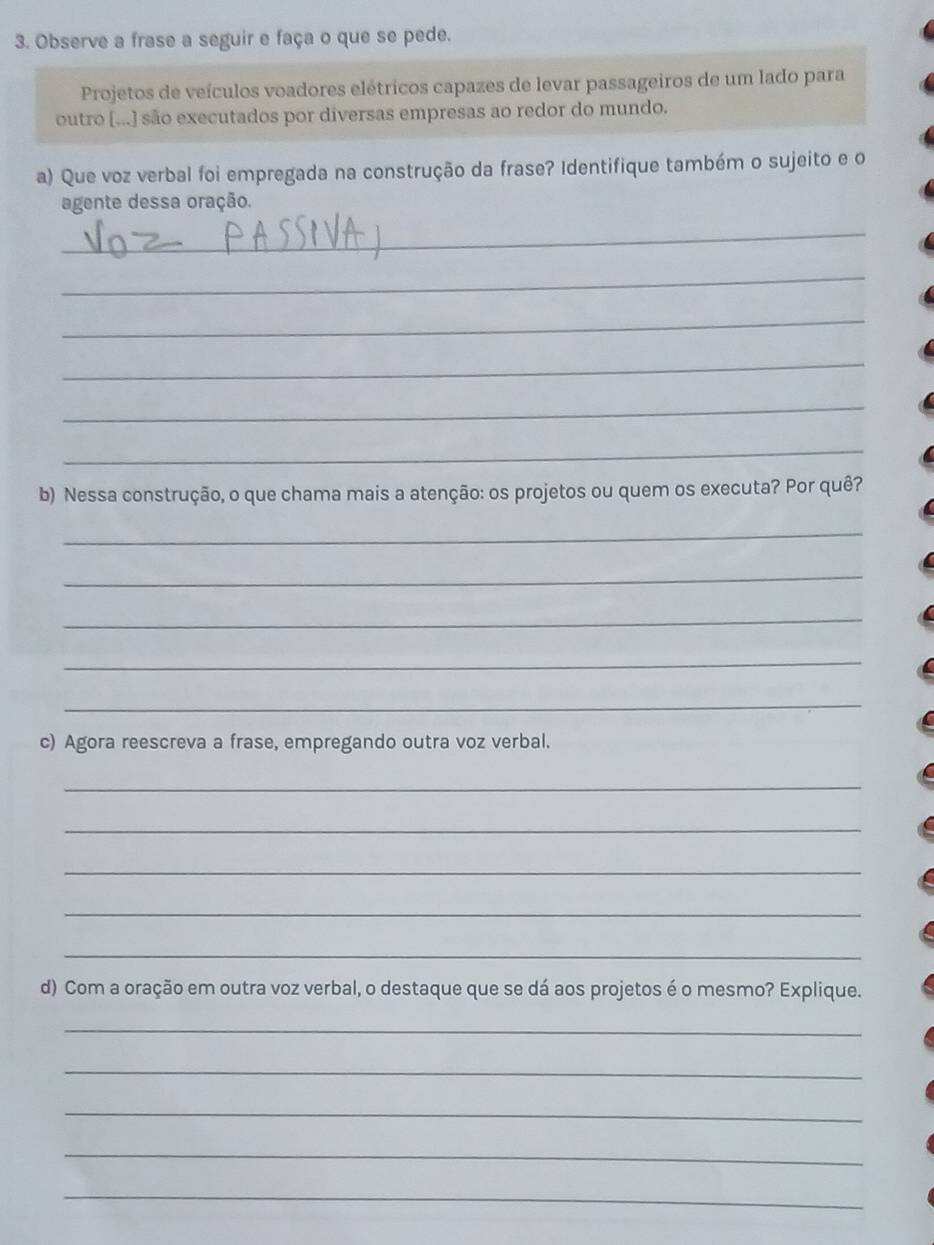 3. Observe a frase a seguir e faça o que se pede.
Projetos de veículos voadores elétricos capazes de levar passageiros de um lado para
outro [...] são executados por diversas empresas ao redor do mundo.
a) Que voz verbal foi empregada na construção da frase? Identifique também o sujeito e o
agente dessa oração.
VOZ PASSIVA,
b) Nessa construção, o que chama mais a atenção: os projetos ou quem os executa? Por quê?
c) Agora reescreva a frase, empregando outra voz verbal.
d) Com a oração em outra voz verbal, o destaque que se dá aos projetos é o mesmo? Explique.